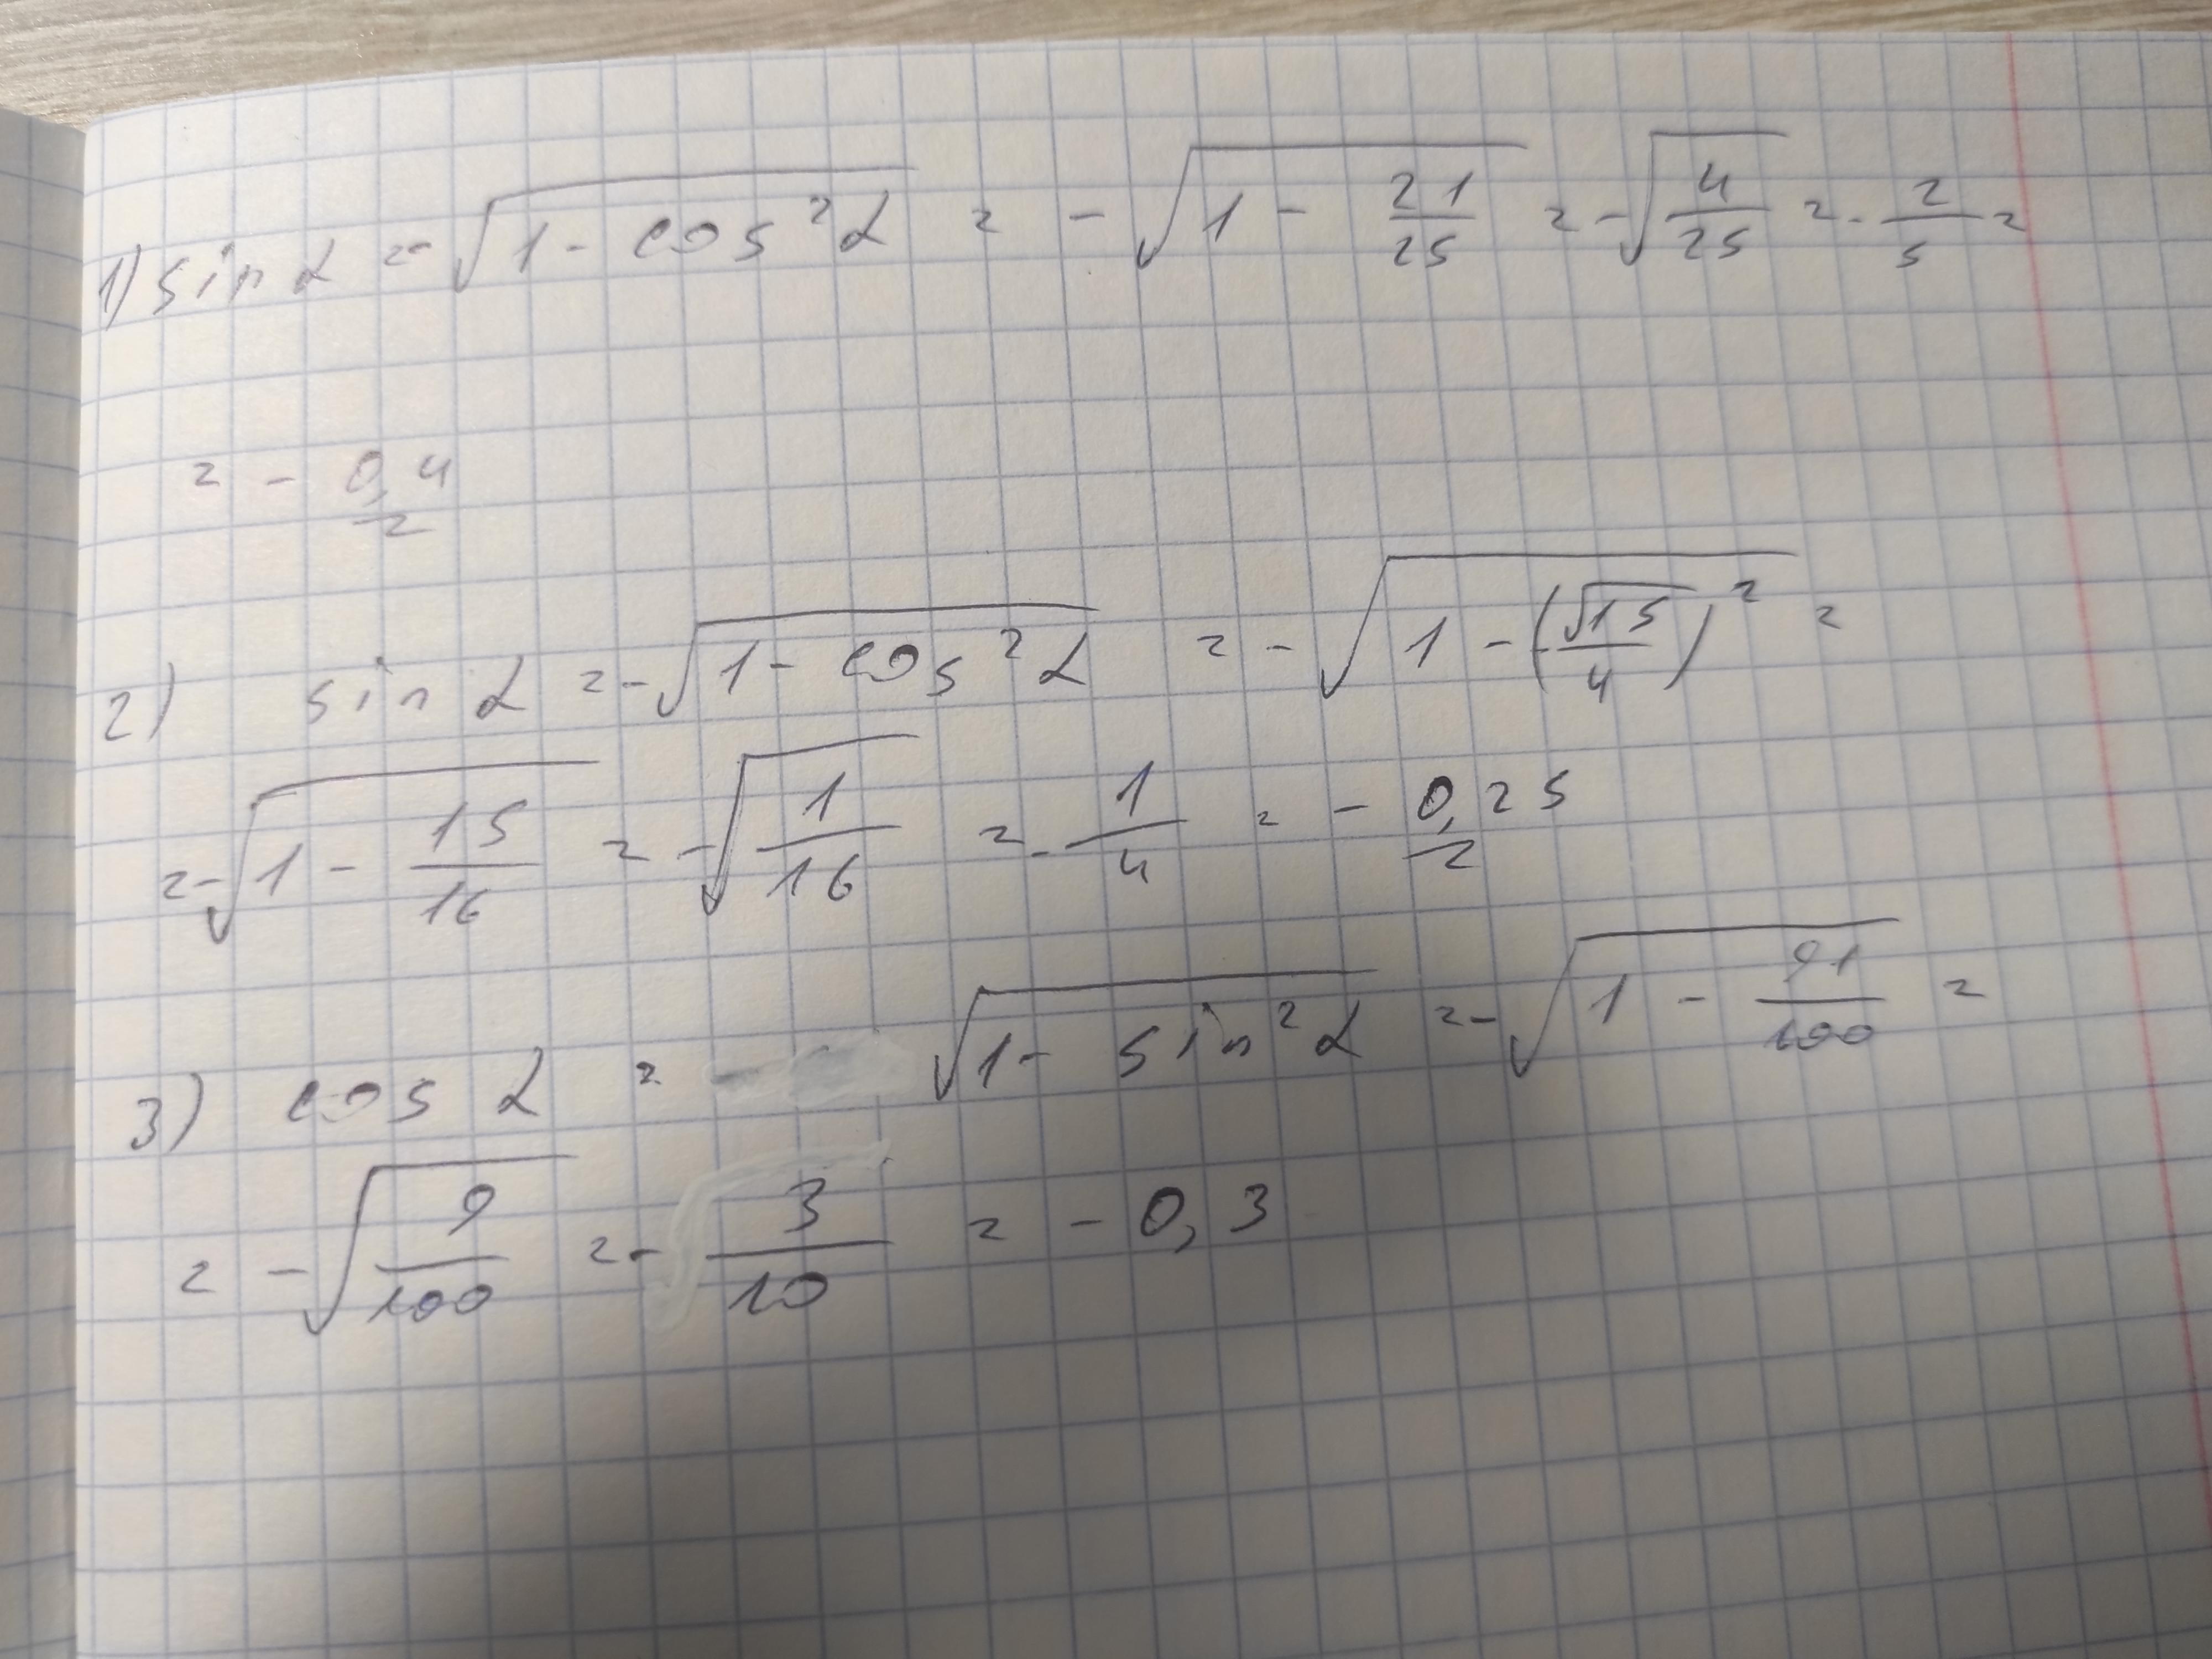 1) sin α = -√(1 - cos²α) = -√(1 - 21/25) = -√(4/25) = -2/5 =
= - 0,4
2) sin α = -√(1 - cos²α) = -√(1 - (-√15/4)²) =
= -√(1 - 15/16) = -√(1/16) = -1/4 = - 0,25
3) cos α = - √(1 - sin²α) = -√(1 - 91/100) =
= -√(9/100) = -3/10 = - 0,3